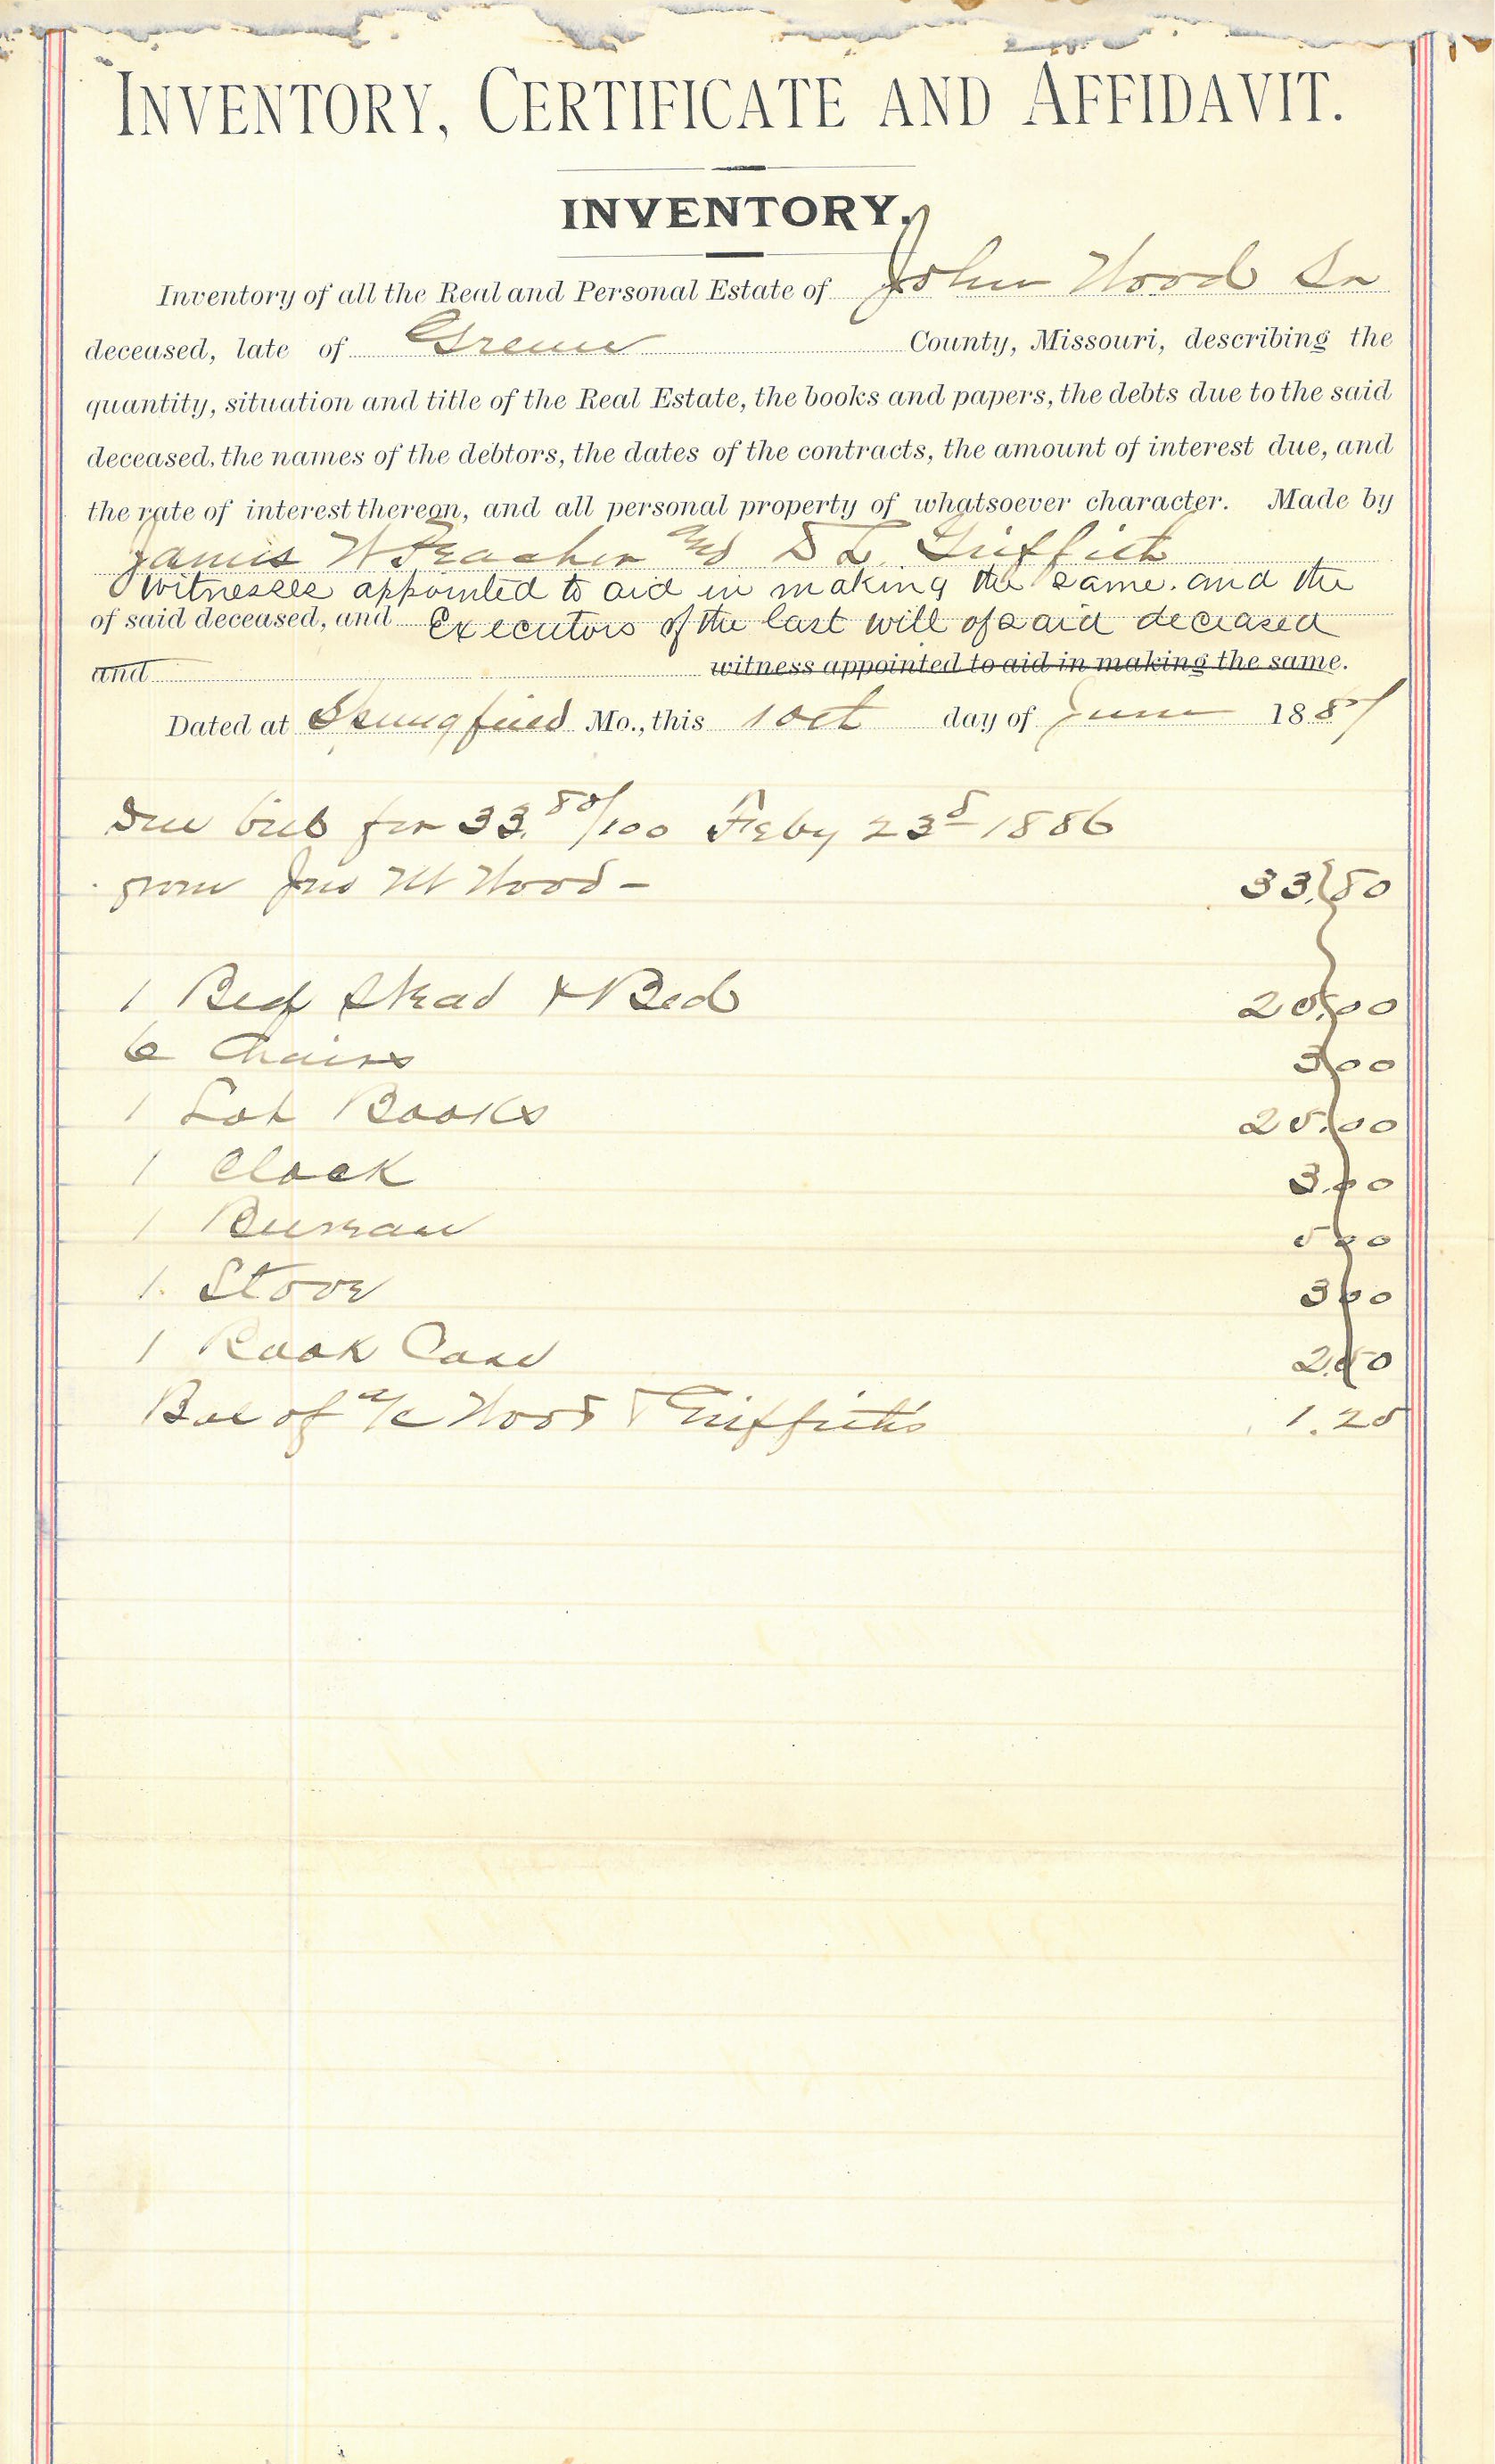 INVENTORY, CERTIFICATE AND AFFIDAVIT.
INVENTORY.
Inventory of all the Real and Personal Estate of John Wood Sr
deceased, late of Greene County, Missouri, describing the
quantity, situation and title of the Real Estate, the books and papers, the debts due to the said
deceased, the names of the debtors, the dates of the contracts, the amount of interest due, and
the rate of interest thereon, and all personal property of whatsoever character. Made by
James W and D L Griffith
Witnesses appointed to aid in making the same. and the
of said deceased, and Executors of the last will of said deceased
and witness appointed to aid in making the same.
Dated at Springfield Mo., this day of June 188
Due bill for 33.80/100 Feby 23d 1886
from Jno W Wood - 33.80
1 Bed Stead & Bed
6 Chairs 3.00
1 Lot Books 25.00
1 Clock 3.00
1 Bureau 5.00
1 Stove 3.00
1 Book Case 2.50
Bal of a/c Wood & Griffith's 1.25